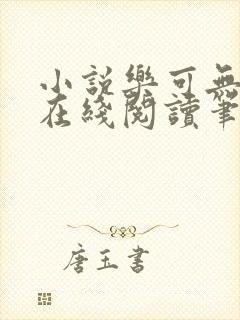 小說樂可無
在綫閱讀筆
唐玉書